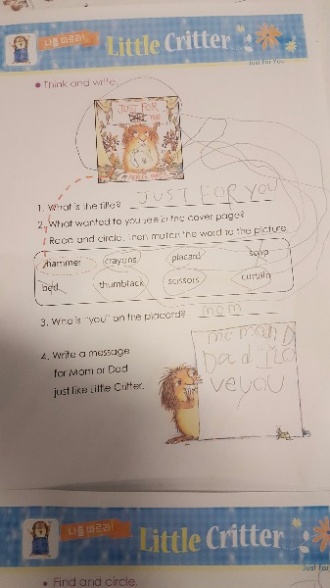 나를 따르라!
Little Critter
Just For You
• Think and write.
JUST FOR
YOU
1. What is the title? JUST FOR YOU
2. What wanted to you see in the cover page?
Read and circle. Then match the word to the picture.
hammer crayons placard soap
bed thumbtack scissors curtain
3. Who is "you" on the placard? mom
4. Write a message
for Mom or Dad
just like Little Critter.
Dad I lo
veyou
나를 따르라!
Little Critter
Just For
• Find and circle.